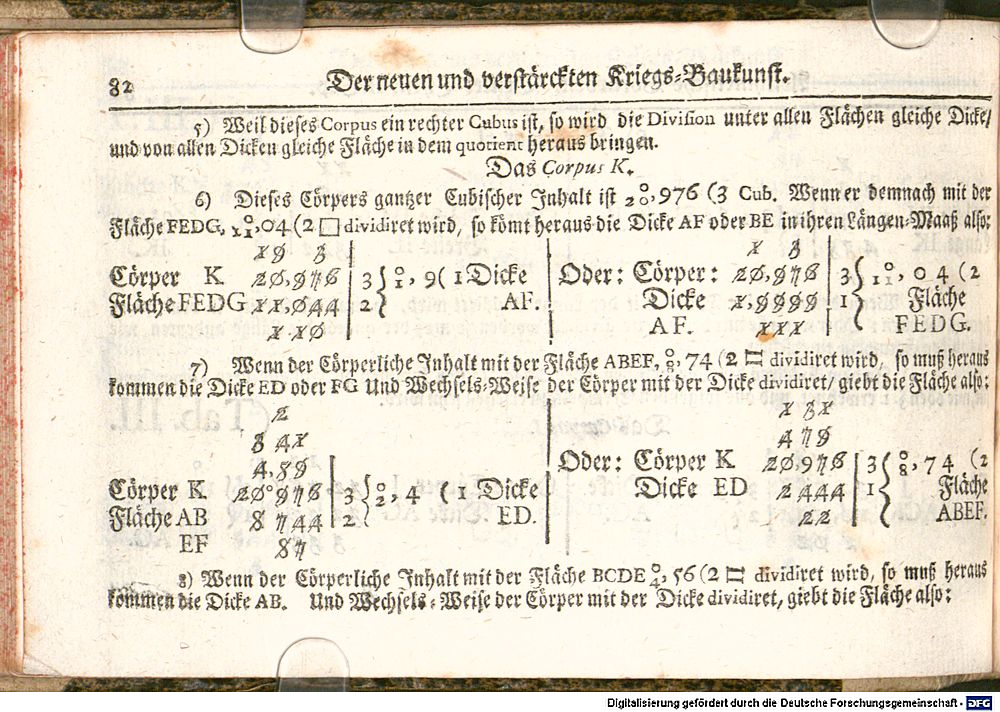 82 Der neuen und verstärckten Kriegs-Baukunst.
5) Weil dieses Corpus ein rechter Cubus ist, so wird die Division unter allen Flächen gleiche Dicke/
und von allen Dicken gleiche Fläche in dem quotient heraus bringen.
Das Corpus K.
6) Dieses Cörpers gantzer Cubischer Inhalt ist 20,976 (3 Cub. Wenn er demnach mit der
Fläche FEDG, 11,04 (2 □ dividiret wird, so kömt heraus die Dicke AF oder BE in ihren Längen-Maaß also:
Cörper K 20,976 | 3 { 1, 9 ( 1 Dicke
Fläche FEDG 11,044 | 2 { AF.
110
Oder: Cörper: 20,976 | 3 { 11, 04 (2
Dicke 1,9999 | 1 { Fläche
AF. 111 FEDG.
7) Wenn der Cörperliche Inhalt mit der Fläche ABEF, 8, 74 (2 □ dividiret wird, so muß heraus
kommen die Dicke ED oder FG Und Wechsels-Weise der Cörper mit der Dicke dividiret/ giebt die Fläche also:
2
3 41
4,89
Cörper K 20°976 | 3 { 2, 4 ( 1 Dicke
Fläche AB 8 744 | 2 { ED.
EF 87
1 31
479
Oder: Cörper K 20,976 | 3 { 8, 74 (2
Dicke ED 2444 | 1 { Fläche
22 ABEF.
8) Wenn der Cörperliche Inhalt mit der Fläche BCDE 4, 56 (2 □ dividiret wird, so muß heraus
kommen die Dicke AB. Und Wechsels-Weise der Cörper mit der Dicke dividiret, giebt die Fläche also:
Digitalisierung gefördert durch die Deutsche Forschungsgemeinschaft - DFG